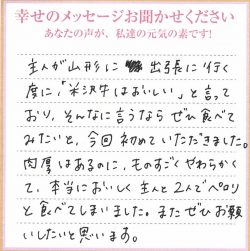 幸せのメッセージお聞かせください
あなたの声が、私達の元気の素です!
主人が山形に出張に行く
度に、「米沢牛はおいしい」と言って
おり、そんなに言うなら ぜひ食べて
みたいと、今回初めていただきました。
肉厚はあるのに、ものすごくやわらかく
て、本当においしく主人と2人でペロリ
と食べてしまいました。またぜひお願
いしたいと思います。